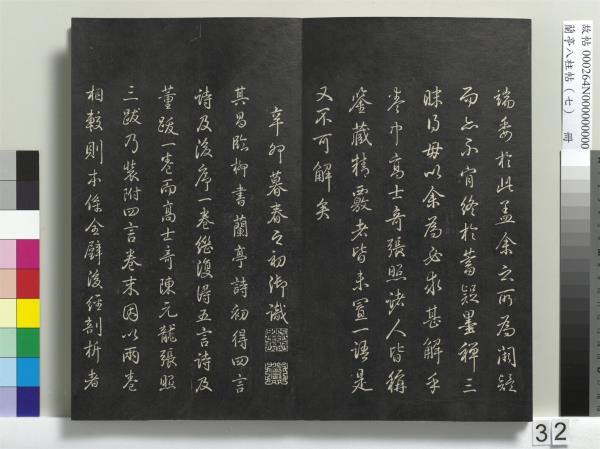 端委於此蓋余之所為闕疑
而亦不肯終於蓄疑墨禪三
昧得毋以余為必求甚解乎
卷中高士奇張照諸人皆稱
鑒藏精覈者皆未置一語是
又不可解矣
辛卯暮春之初御識
其昌臨柳書蘭亭詩初得四言
詩及後序一卷繼復得五言詩及
董跋一卷而高士奇陳元龍張照
三跋乃裝附四言卷末因以兩卷
相較則本係全璧後經剖析者
故帖 000264N000000000
蘭亭八柱帖(七) 冊
32